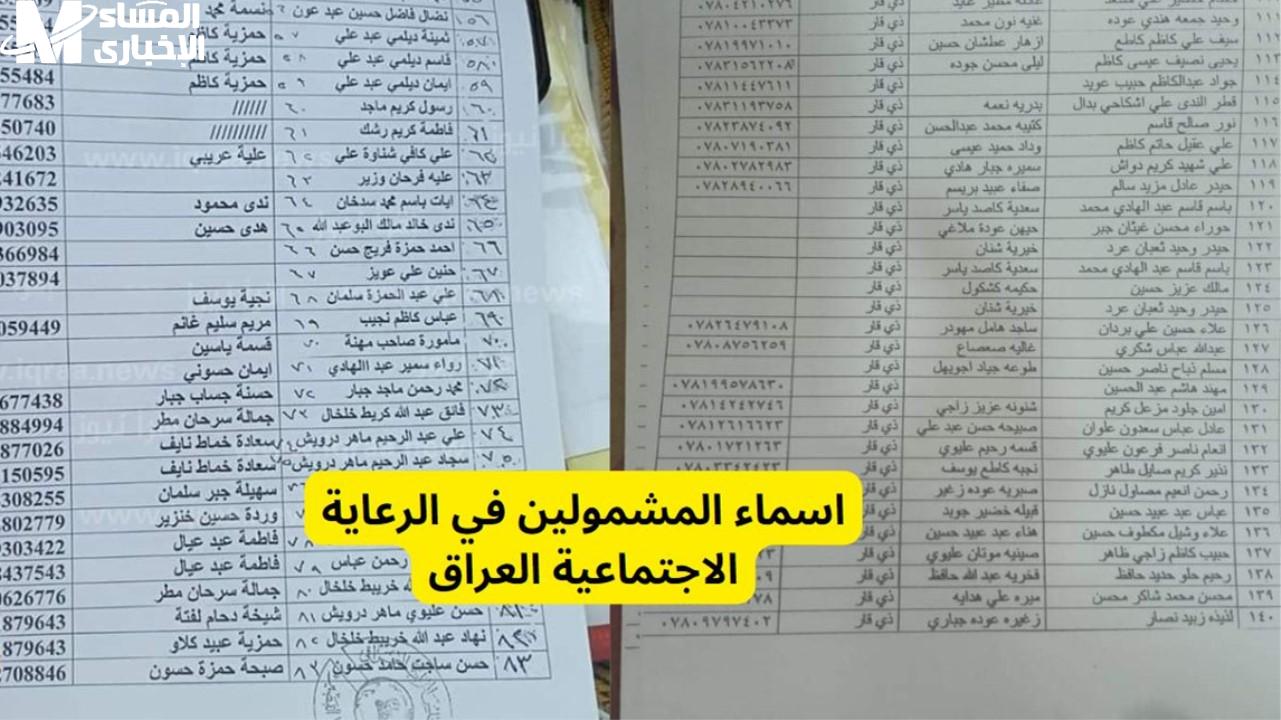 المساء
الإخبارى
اسماء المشمولين في الرعاية
الاجتماعية العراق
وحيد جمعه هندي عوده غنيه نون محمد ذي قار ٠٧٨١٠٠٤٣٣٧٣
١١١ سيف علي كاظم كاطع ازهار عطشان حسين ذي قار ٠٧٨١٩٩٧١٠١٠
١١٢ يحيى نصيف عيسى كاظم ليلى محسن جوده ذي قار ٠٧٨٣١٥٦٢٢٠٨
١١٤ جواد عبدالكاظم حبيب عويد ذي قار ٠٧٨١١٤٤٧٦١١
١١٥ قطر الندى علي اشكاحي بدال بدريه نعمه ذي قار ٠٧٨٣١١٩٣٧٥٨
١١٦ نور صالح قاسم كتيبه محمد عبدالحسن ذي قار ٠٧٨٢٣٨٧٤٠٩٢
١١٧ علي عقيل حاتم كاظم وداد حميد عيسى ذي قار ٠٧٨٠٧١٩٠٣٨١
١١٨ علي شهيد كريم دواش سميره جبار هادي ذي قار ٠٧٨٠٢٧٨٢٩٨٣
١١٩ حيدر عادل مزيد سالم صفاء عبيد بريسم ذي قار ٠٧٨٢٨٩٤٠٠٦٦
١٢٠ باسم قاسم عبد الهادي محمد سعدية كاصد ياسر ذي قار
١٢١ حوراء محسن غيثان جبر جيهن عودة ملاغي ذي قار
١٢٢ حيدر وحيد ثعبان عرد خيرية شنان ذي قار
١٢٣ باسم قاسم عبد الهادي محمد سعدية كاصد ياسر ذي قار
١٢٤ مالك عزيز حسين حكيمه كشكول ذي قار
١٢٥ حيدر وحيد ثعبان عرد خيرية شنان ذي قار
١٢٦ علاء حسين علي بردان ساجد هامل مهودر ذي قار ٠٧٨٢٦٤٧٩١٠٨
١٢٧ عبدالله عباس شكري غاليه صعصاع ذي قار ٠٧٨٠٨٧٥٦٢٥٩
١٢٨ مسلم نباح ناصر حسين طوعه جياد اجويهل ذي قار
١٢٩ مهند هاشم عبد الحسين ذي قار ٠٧٨١٩٩٥٧٨٦٣٠
١٣٠ امين جلود مزعل كريم شنونه عزيز زاجي ذي قار ٠٧٨١٤٢٤٢٧٤٦
١٣١ عادل عباس سعدون علوان صبيحه حسن عبد علي ذي قار ٠٧٨١٢٦١٦٦٢٣
١٣٢ انعام ناصر فرعون عليوي قسمه رحيم عليوي ذي قار ٠٧٨٠١٧٣١٢٦٣
١٣٣ نذير كريم صايل طاهر نجيه كاطع يوسف ذي قار ٠٧٨٠٣٣٤٢٤٢٣
١٣٤ رحمن انعيم مصاول نازل صبريه عوده زغير ذي قار
١٣٥ عباس عبد عبيد حسين قبيله خضير جويد ذي قار
١٣٦ علاء وشيل مكطوف حسين هناء عبد عبيد حسين ذي قار
١٣٧ حبيب كاظم زاجي ظاهر صينيه موتان عليوي ذي قار
١٣٨ رحيم حلو حديد حافظ فخريه عبد الله حافظ ذي قار
١٣٩ محسن محمد شاكر محسن ميره علي هدايه ذي قار
١٤٠ لذيذه زبيد نصار زغيره عوده جباري ذي قار ٠٧٨٠٩٧٩٧٤٠٢
٥٦ نضال فاضل حسين عبد عون نسمة محمد
ثمينة ديلمي عبد علي ٥٧ حمزية كاظم
قاسم ديلمي عبد علي ٥٨ حمزية كاظم
٥٩ ايمان ديلمي عبد علي ٥٩ حمزية كاظم 55484
٦٠ رسول كريم ماجد ٦٠ ////// 77683
٦١ فاطمة كريم رشك ٦١ ////////// 50740
علي كافي شناوة علي ٦٢ علية عريبي 546203
٦٣ عليه فرحان وزير ٦٣ 241672
٦٤ ايات باسم محمد سدخان ٦٤ ندى محمود 932635
٦٥ ندى خالد مالك البوعبد الله ٦٥ هدى حسين 903095
٦٦ احمد حمزة فريج حسن ٦٦ 366984
٦٧ حنين علي عويز ٦٧ 037894
علي عبد الحمزة سلمان ٦٨ نجية يوسف
٦٩ عباس كاظم نجيب ٦٩ مريم سليم غانم 059449
٧٠ مأمورة صاحب مهنة ٧٠ قسمة ياسين
٧١ رواء سمير عبد الهادي ٧١ ايمان حسوني
محمد رحمن ماجد جبار ٧٢ حسنة جساب جبار 677438
٧٣ فائق عبد الله كريط خلخال ٧٣ جمالة سرحان مطر 884994
٧٤ علي عبد الرحيم ماهر درويش ٧٤ سعادة خماط نايف 877026
٧٥ سجاد عبد الرحيم ماهر درويش ٧٥ سعادة خماط نايف 150595
سهيلة جبر سلمان 308255
وردة حسين خنزير 802779
٧٨ فاطمة عبد عيال 9303422
رحمن عباس ٧٩ فاطمة عبد عيال 8437543
خريبط خلخال ٨٠ جمالة سرحان مطر 0626776
٨١ حسن عليوي ماهر درويش ٨١ شيخة دحام لفتة 1879643
نهاد عبد الله خريبط خلخال ٨٢ حمزية عبيد كلاو 1879643
٨٣ حسن ساجت حامد حسون ٨٣ صبحة حمزة حسون 2708846